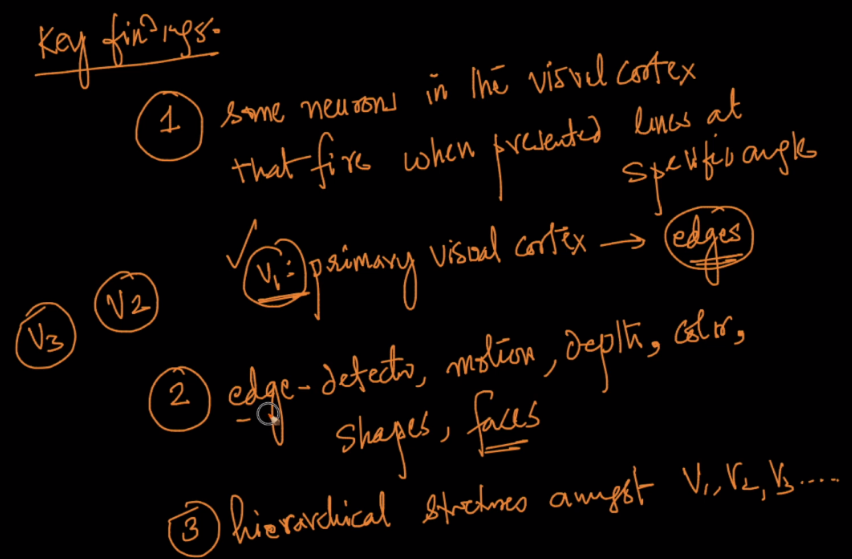 Key findings.
1 some neurons in the visual cortex
that fire when presented lines at
specific angle
V1: primary visual cortex → edges
V2
V3
2 edge-detectn, motion, depth, color,
shapes, faces
3 hierarchical structures amongst V1, V2, V3 ....